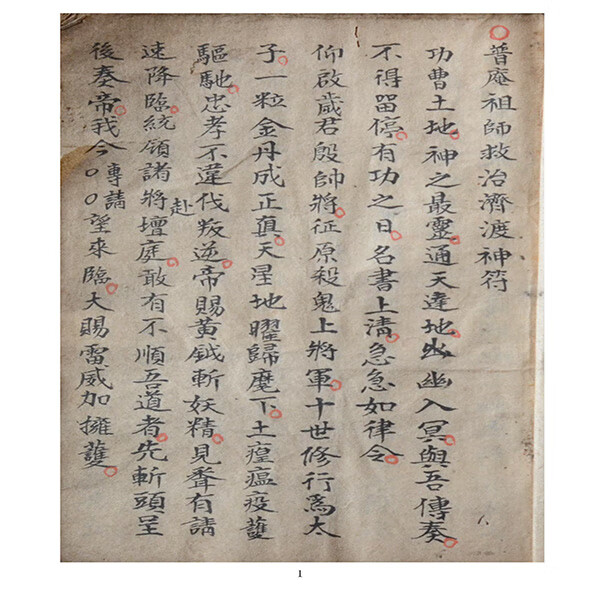 ○普庵祖師救治濟渡神符
功曹土地神之最靈通天達地出幽入冥與吾傳奏
不得留停有功之日名書上清急急如律令
仰啟歲君殷帥將征原殺鬼上將軍十世修行爲太
子一粒金丹成正真天星地曜歸麾下土瘟疫護
驅馳忠孝不違伐叛逆帝賜黃鉞斬妖精見有請
速降臨統領諸將赴壇庭敢有不順吾道者先斬頭呈
後奏帝我今專請○○望來臨大賜雷威加擁護
1